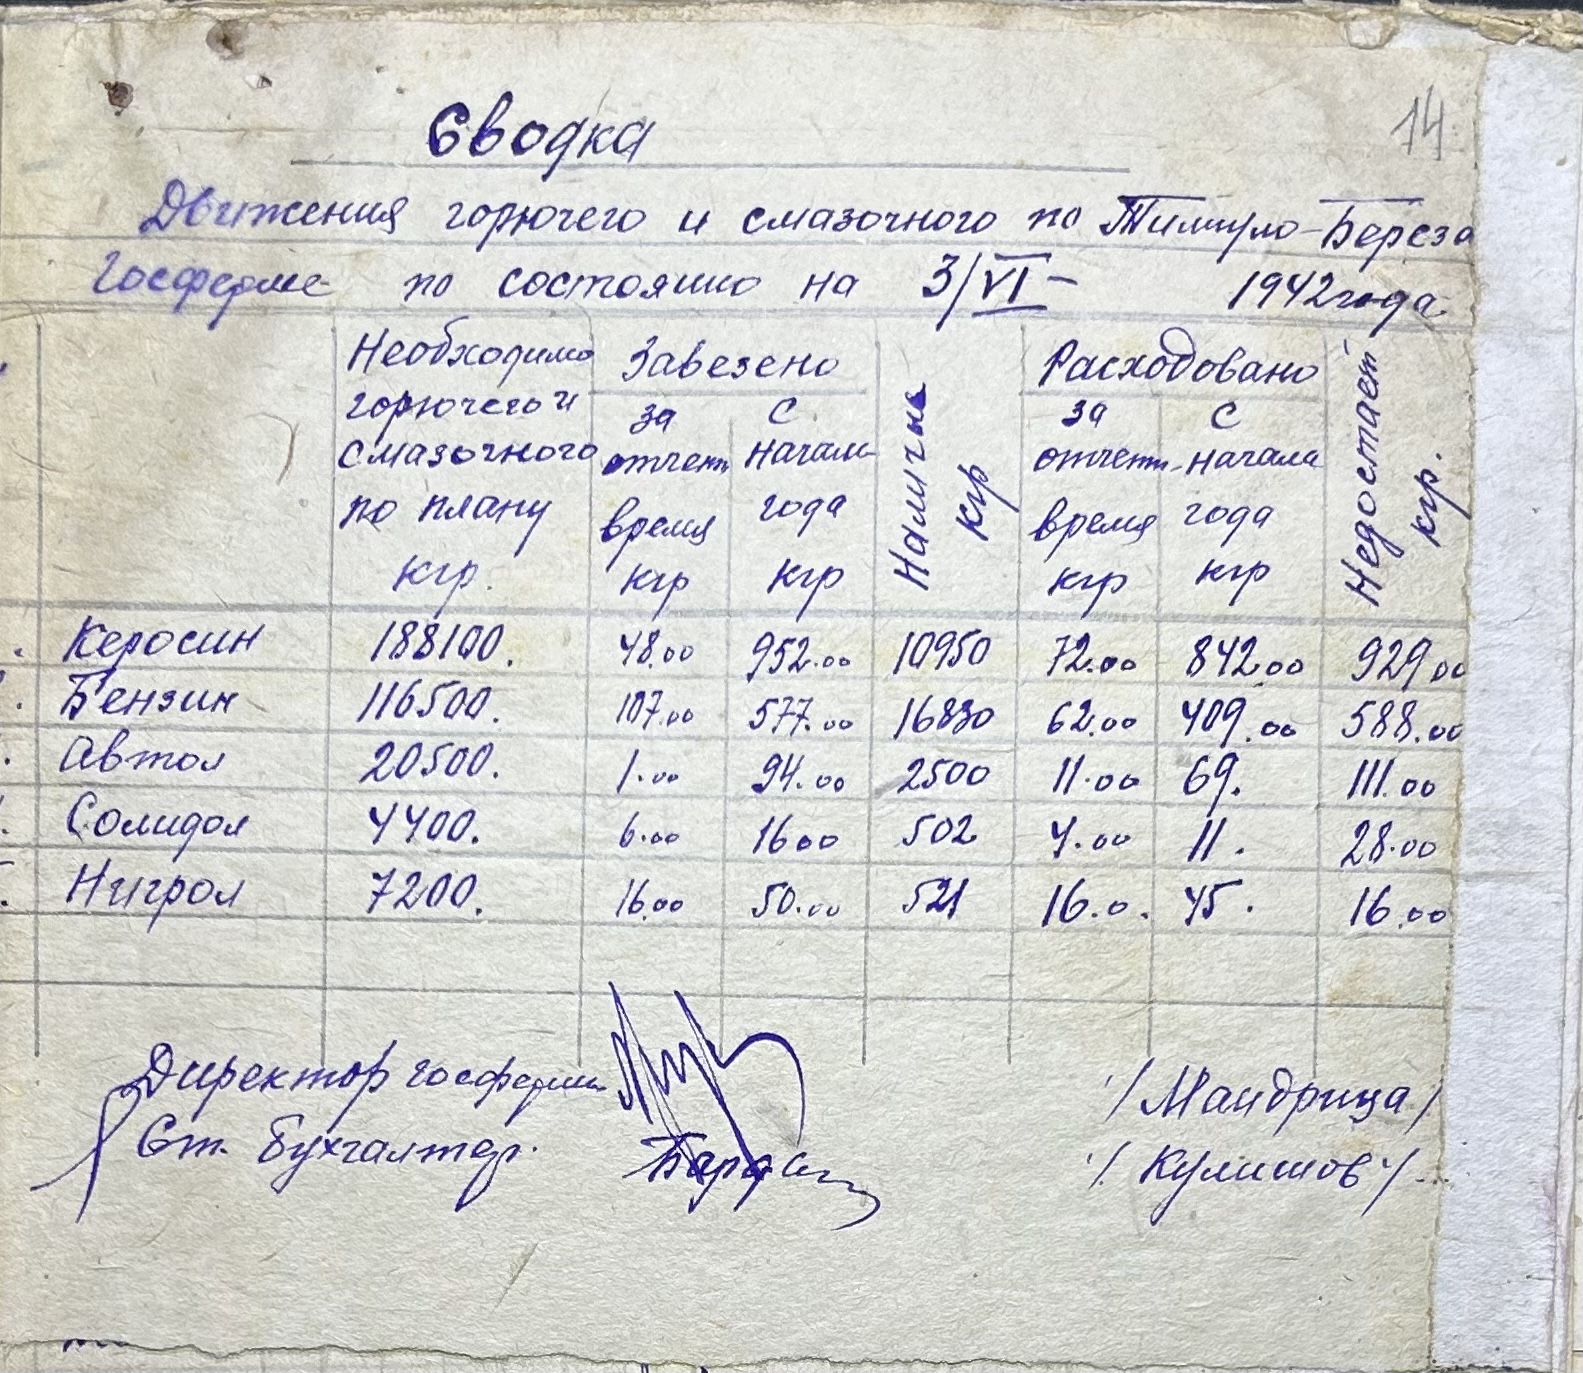 14
Сводка
Движения горючего и смазочного по Тимчуло-Береза
Госферме по состоянию на 3/VI- 1942 года
Необходимо горючего и смазочного по плану кгр.
Завезено
за отчетн время кгр
с начала года кгр
Наличие кгр
Расходовано
за отчетн. время кгр
с начала года кгр
Недостает кгр.
Керосин 188100. 48.00 952.00 10950 72.00 842.00 929.00
Бензин 116500. 107.00 577.00 16830 62.00 409.00 588.00
Автол 20500. 1.00 94.00 2500 11.00 69. 111.00
Солидол 4400. 6.00 16 00 502 4.00 11. 28.00
Нигрол 7200. 16.00 50.00 521 16.0. 45. 16.00
Директор госфермы /Мандрица/
Ст. бухгалтер. /Кулишов/